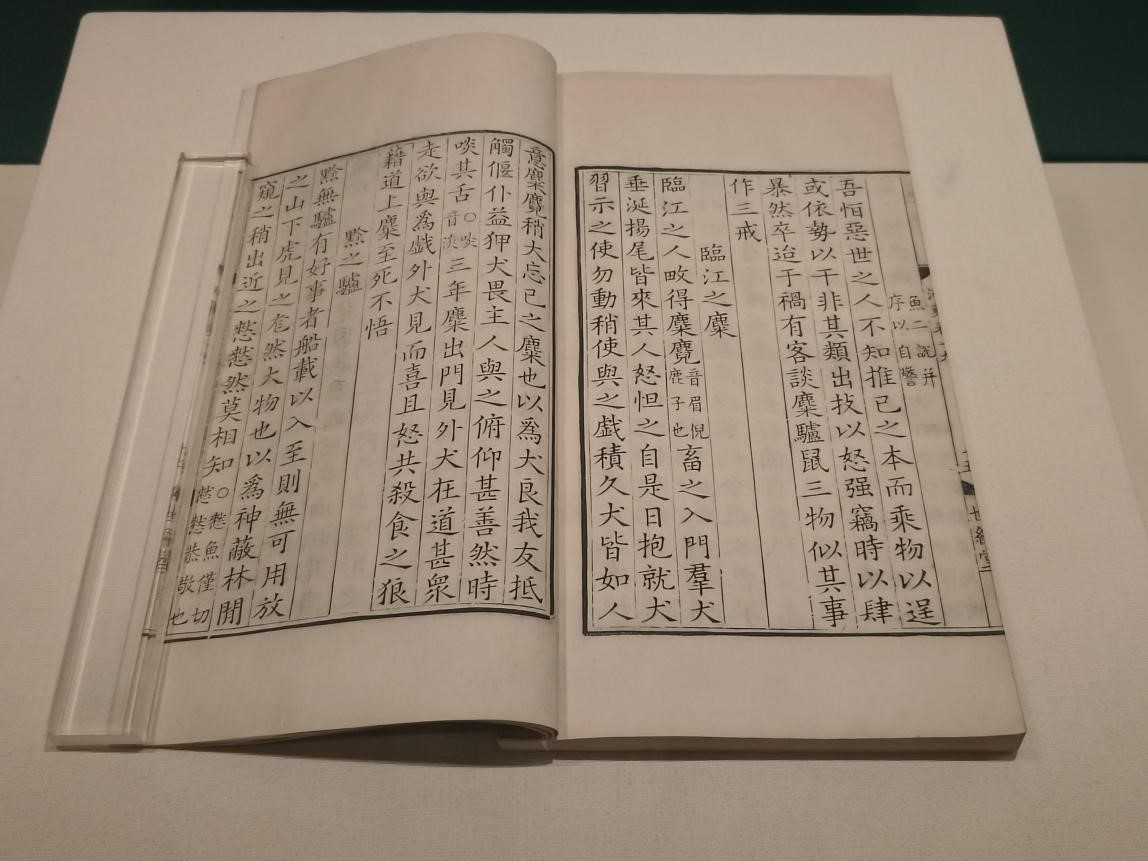 魚二說并
序以自警
吾怕惡世之人不知推己之本而乘物以逞
或依勢以干非其類出技以怒强竊時以肆
暴然卒迨于禍有客談麋驢鼠三物似其事
作三戒
臨江之麋
臨江之人畋得麋麑音眉倪鹿子也畜之入門羣犬
垂涎揚尾皆來其人怒怛之自是日抱就犬
習示之使勿動稍使與之戲積久犬皆如人
意麋麑稍大忘己之麋也以爲犬良我友抵
觸偃仆益狎犬畏主人與之俯仰甚善然時
啖其舌○啖音淡三年麋出門見外犬在道甚衆
走欲與爲戲外犬見而喜且怒共殺食之狼
藉道上麋至死不悟
黔之驢
黔無驢有好事者船載以入至則無可用放
之山下虎見之尨然大物也以爲神蔽林間
窺之稍出近之憖憖然莫相知○憖魚僅切憖憖恭敬也
世綵堂